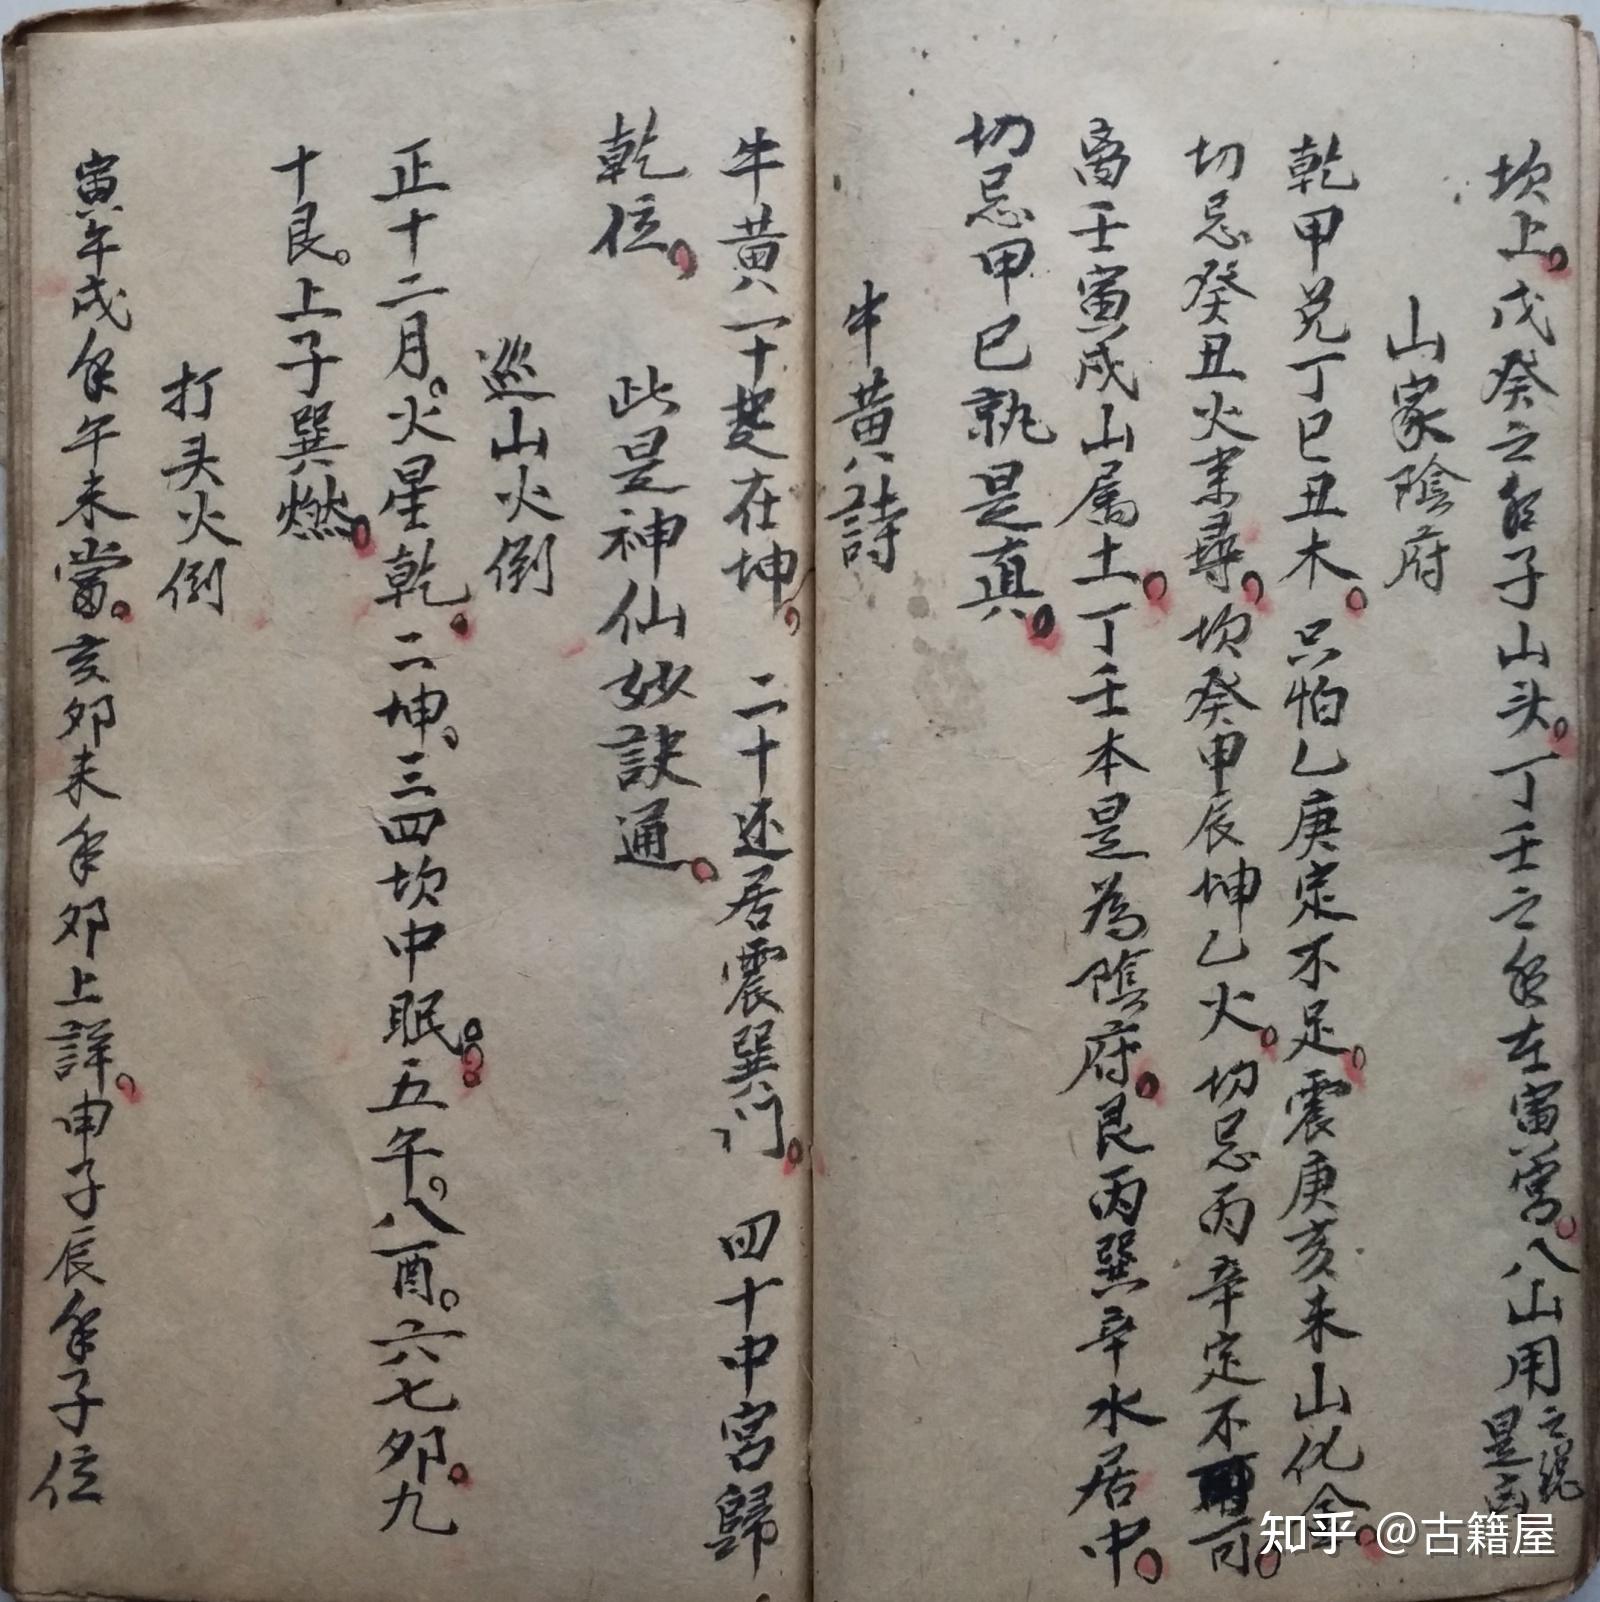 坎上。戊癸之年子山头。丁壬之年在寅当。八山用之總是凶
山家陰府
乾甲兑丁巳丑木。只怕乙庚定不足。震庚亥未山化金。
切忌癸丑火来尋。坎癸甲辰坤乙火。切忌丙辛定不可。
离壬寅戌山属土。丁壬本是為陰府。艮丙巽辛水居中。
切忌甲巳孰是真。
牛黄詩
牛黄一十起在坤。二十还居震巽门。四十中宫歸
乾位。此是神仙妙訣通。
巡山火倒
正十二月。火星乾。二坤。三四坎中眠。五午。八酉。六七夘。九
十艮。上子巽燃。
打头火倒
寅午戌年午未當。亥夘未年夘上詳。申子辰年子位
知乎 @古籍屋